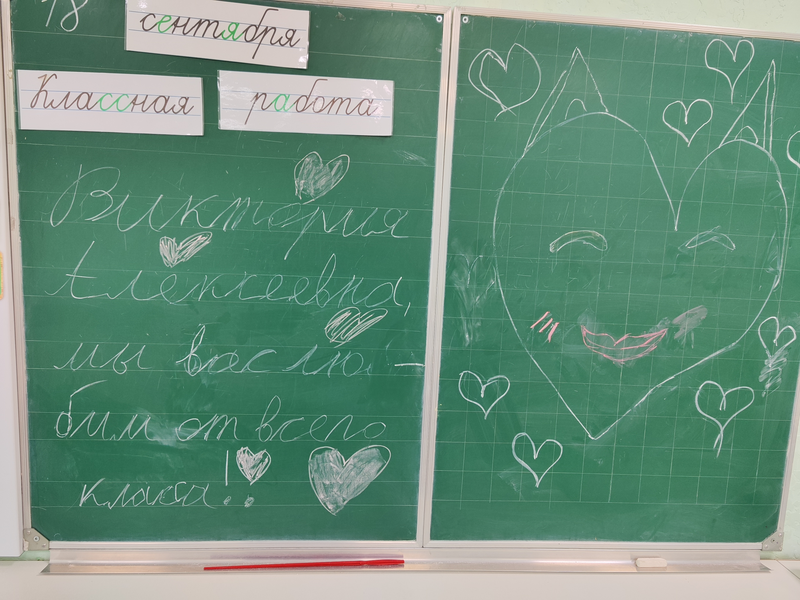 18 сентября
Классная работа
Виктория
Алексеевна,
мы вас лю-
бим от всего
класса!!